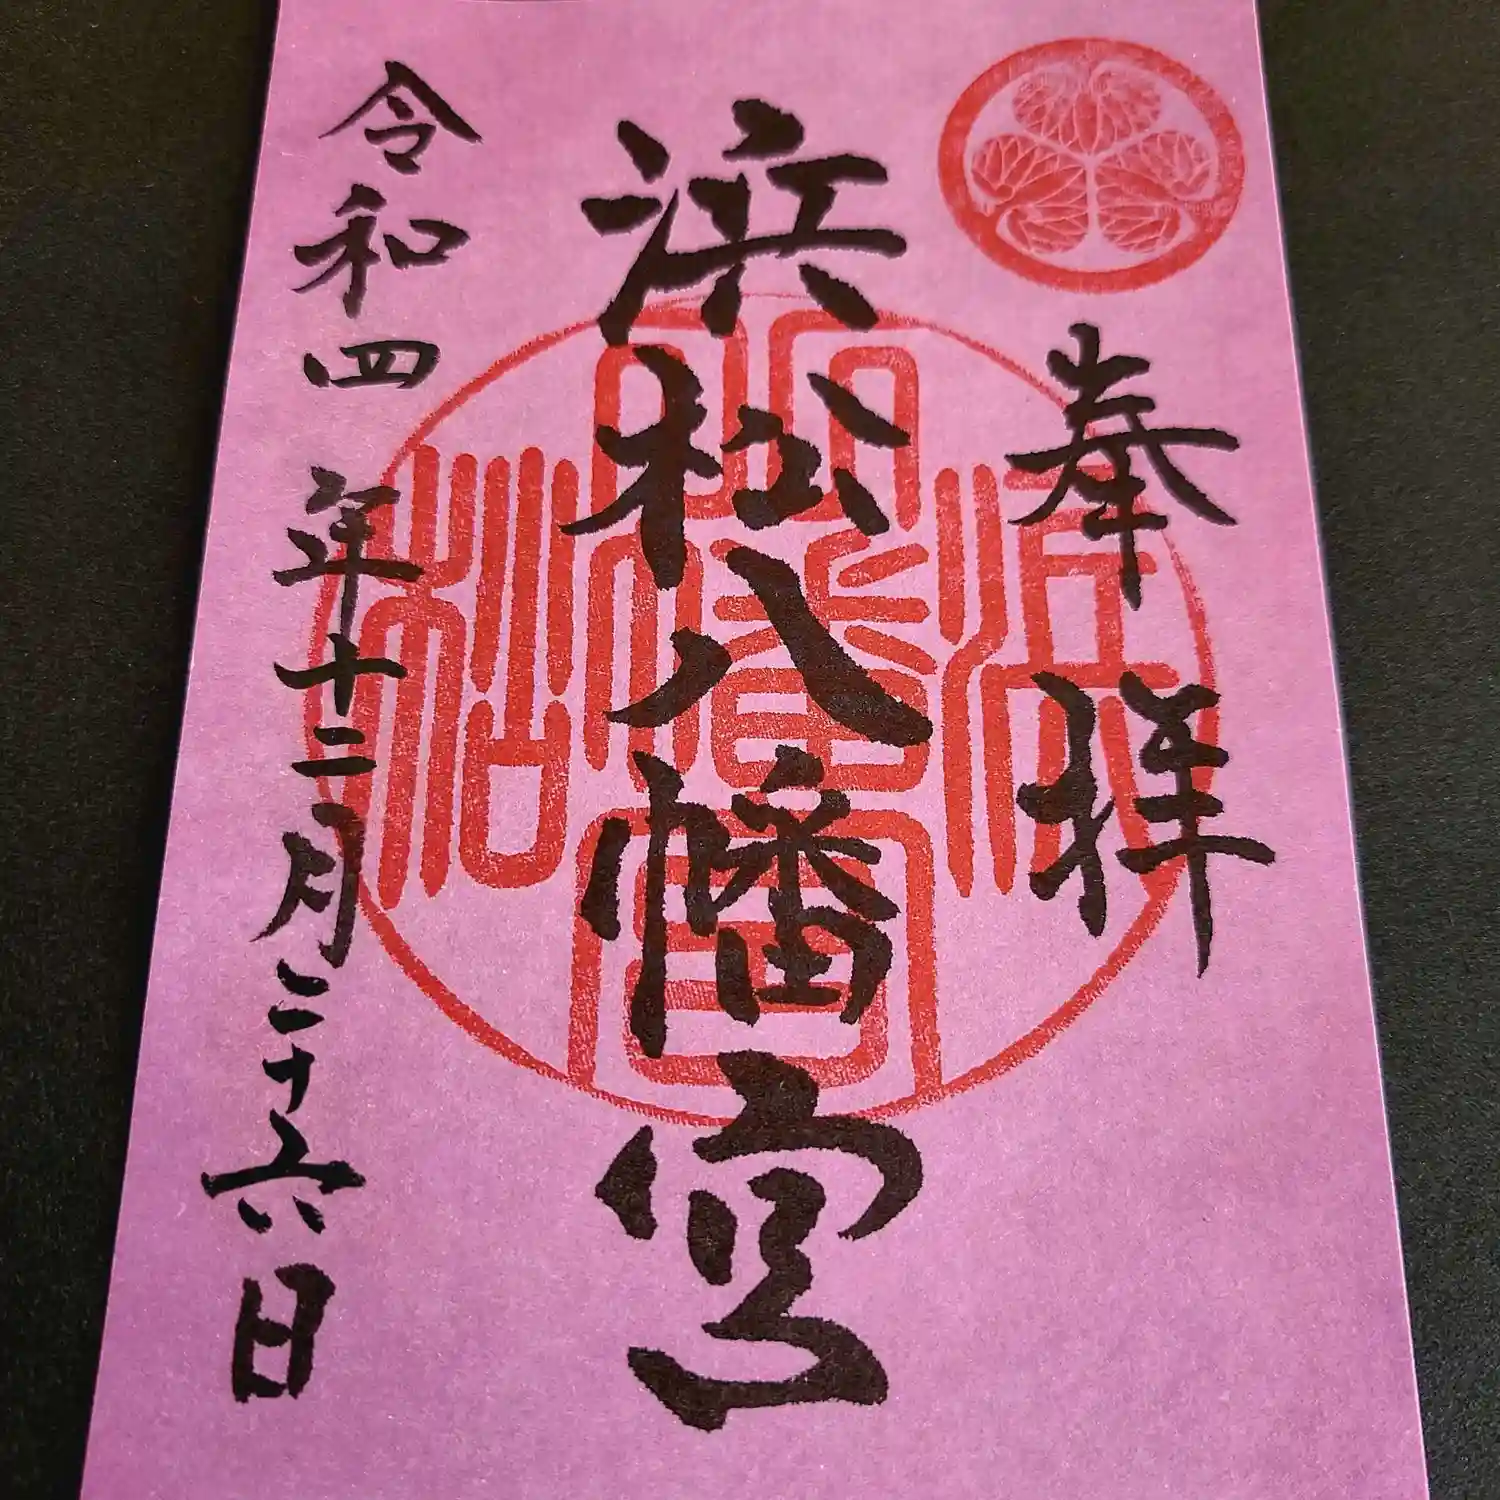 奉拝
浜松八幡宮
令和四年十二月二十六日
浜松八幡宮